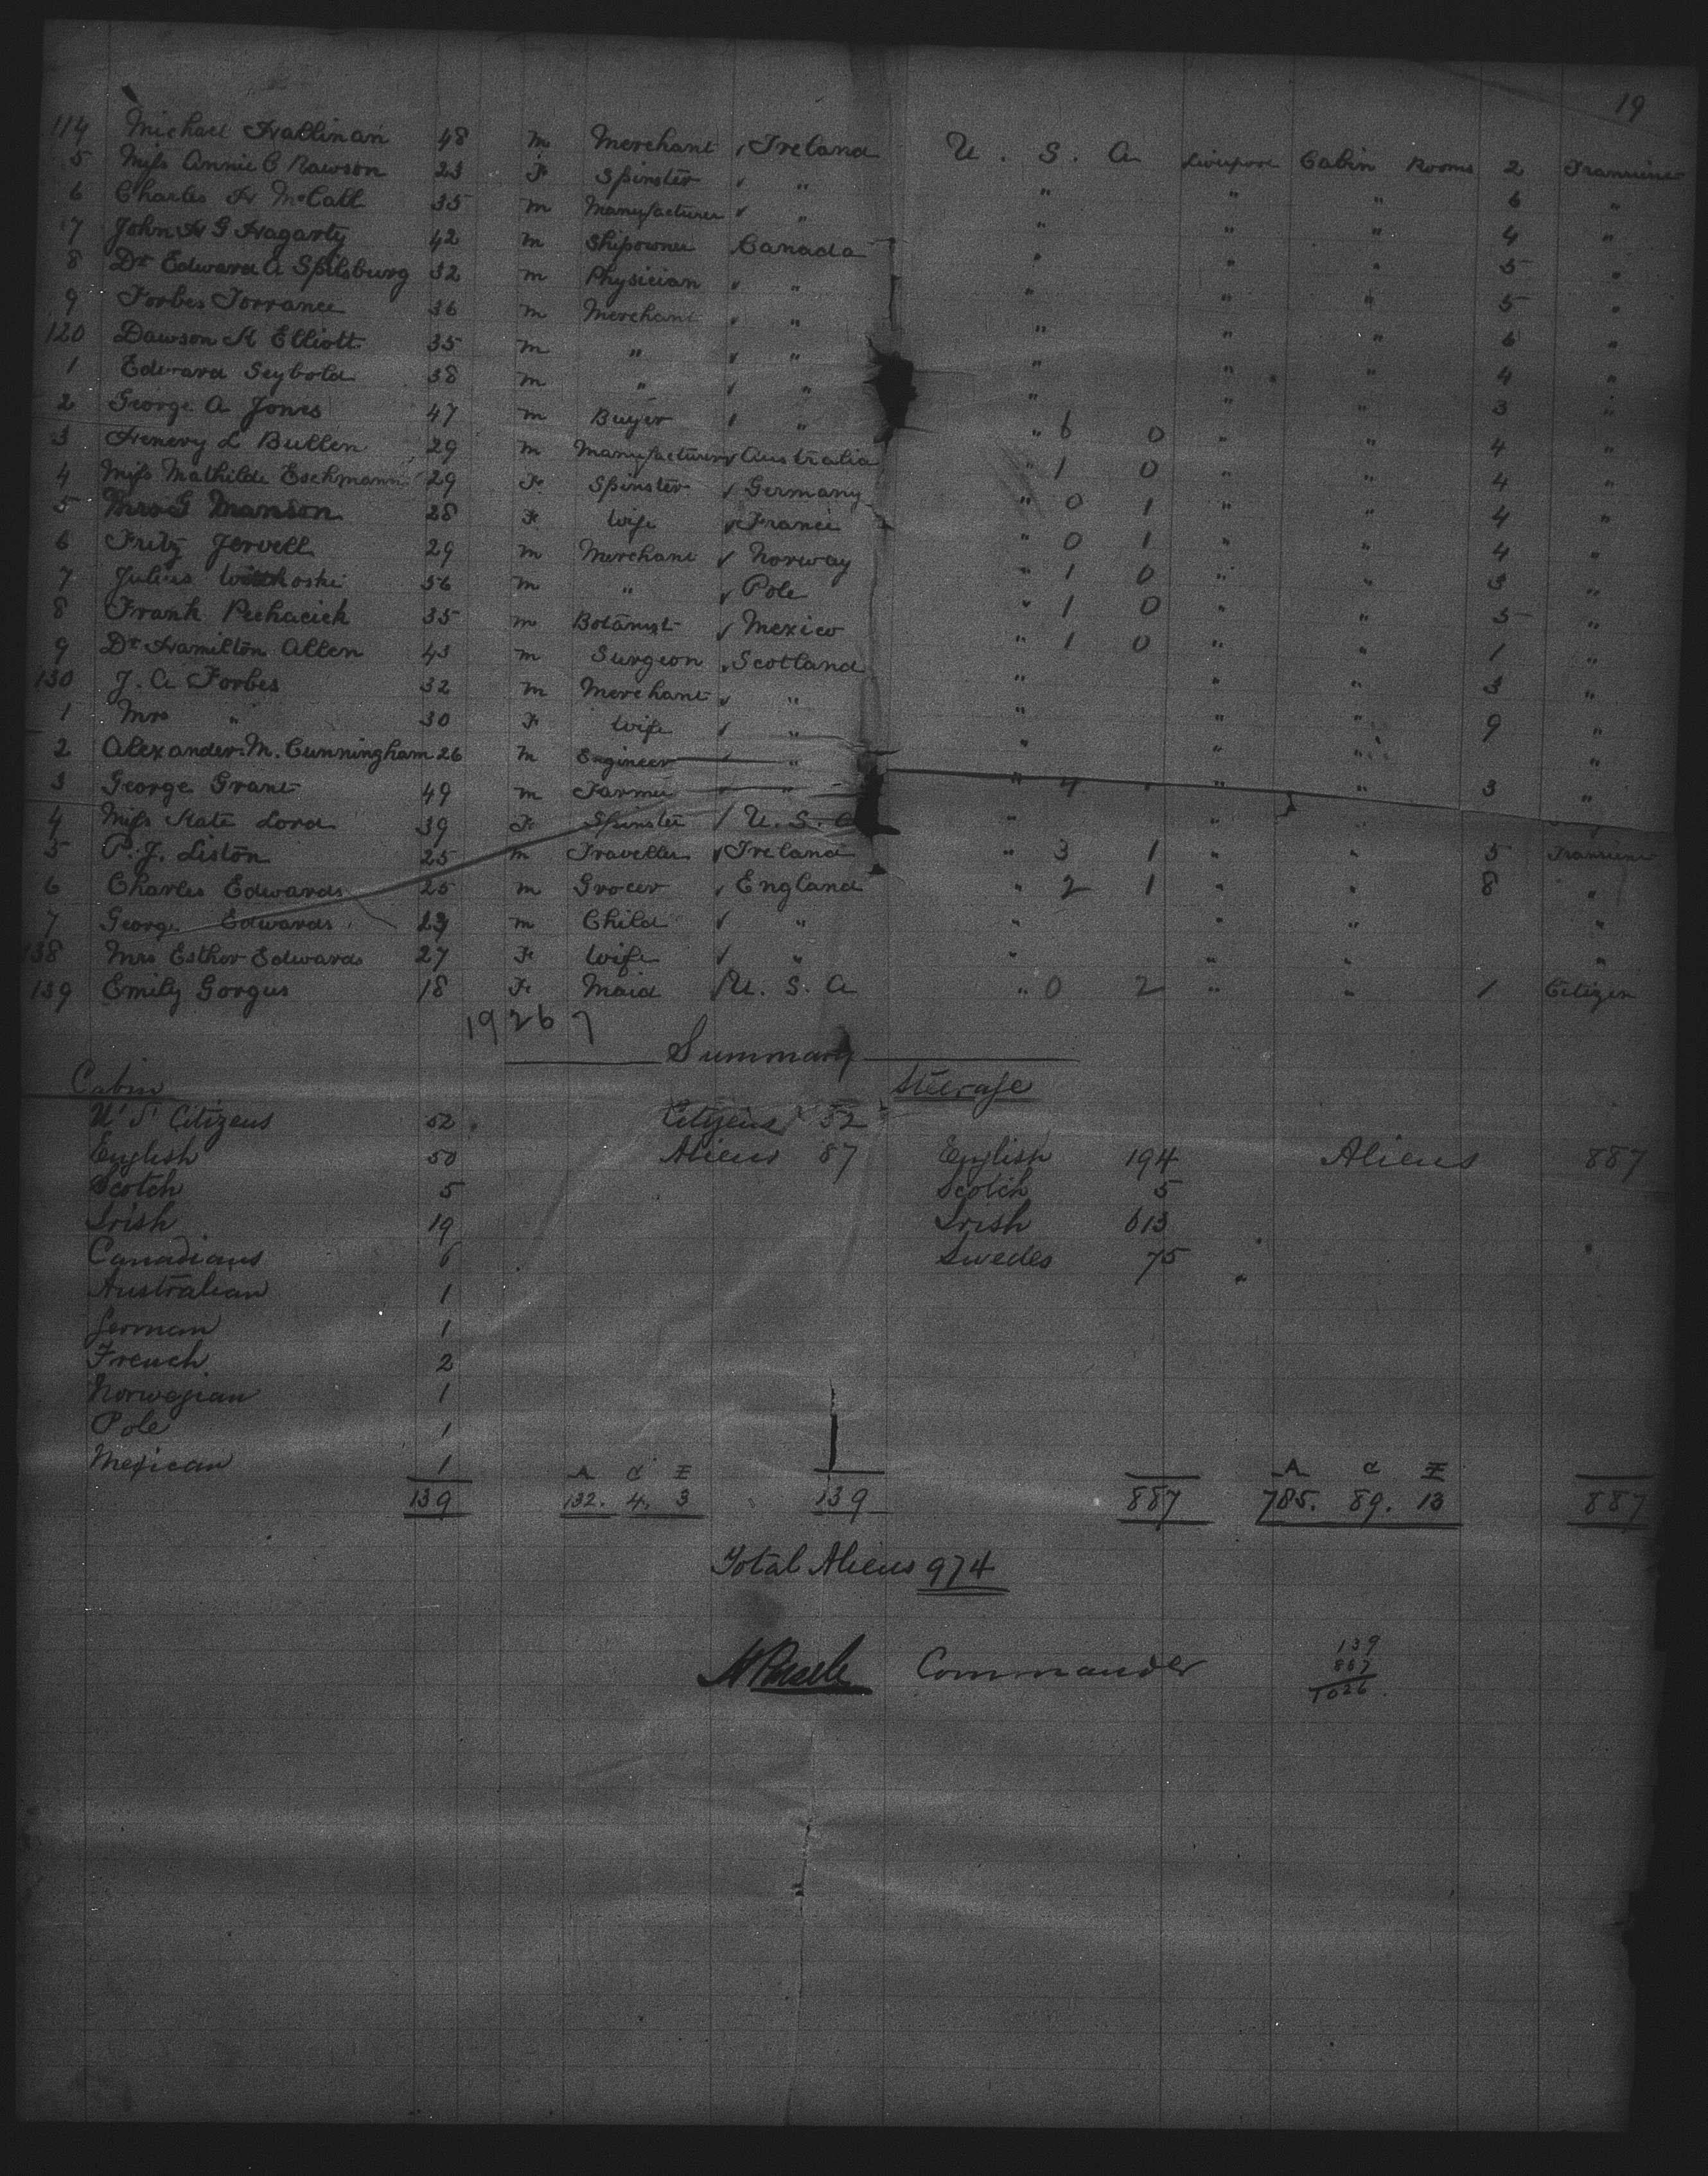 19
114 Michael Hallinan 48 m Merchant Ireland U. S. A Liverpool Cabin Rooms 2 Transient
5 Miss Annie C Rawson 23 F Spinster " " " " 6 "
6 Charles H McCall 35 m Manufacturer " " " " 4 "
7 John H G Hagarty 42 m Shipowner Canada " " " 5 "
8 Dr Edward A Spilsburg 32 m Physician " " " " 5 "
9 Forbes Torrance 36 m Merchant " " " " 6 "
120 Dawson K Elliott 35 m " " " " " 4 "
1 Edward Seybold 38 m " " " " " 3 "
2 George A Jones 47 m Buyer " " 6 0 " " 4 "
3 Henery L Bullen 29 m Manufacturer Australia " 1 0 " " 4 "
4 Miss Mathilde Eschmann 29 F Spinster Germany " 0 1 " " 4 "
5 Mrs G Manson 28 F Wife France " 0 1 " " 4 "
6 Fritz Jervell 29 m Merchant Norway " 1 0 " " 3 "
7 Julius 56 m " Pole " 1 0 " " 5 "
8 Frank Pechacick 35 m Botanist Mexico " 1 0 " " 1 "
9 Dr Hamilton Allen 43 m Surgeon Scotland " " " 3 "
130 J. A Forbes 32 m Merchant " " " " 9 "
1 Mrs " 30 F Wife " " " " "
2 Alexander M. Cunningham 26 m Engineer " " 4 " " 3 "
3 George Grant 49 m Farmer " " " "
4 Miss Kate Lord 39 F Spinster U. S. A " 3 1 " " 5 Transient
5 P. J. Liston 25 m Traveller Ireland " 2 1 " " 8 "
6 Charles Edwards 25 m Grocer England " " " "
7 George Edwards m Child " " " " "
138 Mrs Esther Edwards 27 F Wife "
139 Emily Gorgus 18 F Maid U. S. A " 0 2 " " 1 Citizen
19 26 7
Summary
Cabin Steerage
U S Citizens 52 Citizens 52
English 50 Aliens 87 English 194 Aliens 887
Scotch 5 Scotch 5
Irish 19 Irish 613
Canadians 6 Swedes 75
Australian 1
German 1
French 2
Norwegian 1
Pole 1
Mexican 1 A C I A C I
139 132. 4. 3 139 887 785. 89. 13 887
Total Aliens 974
Commander
139
887
1026